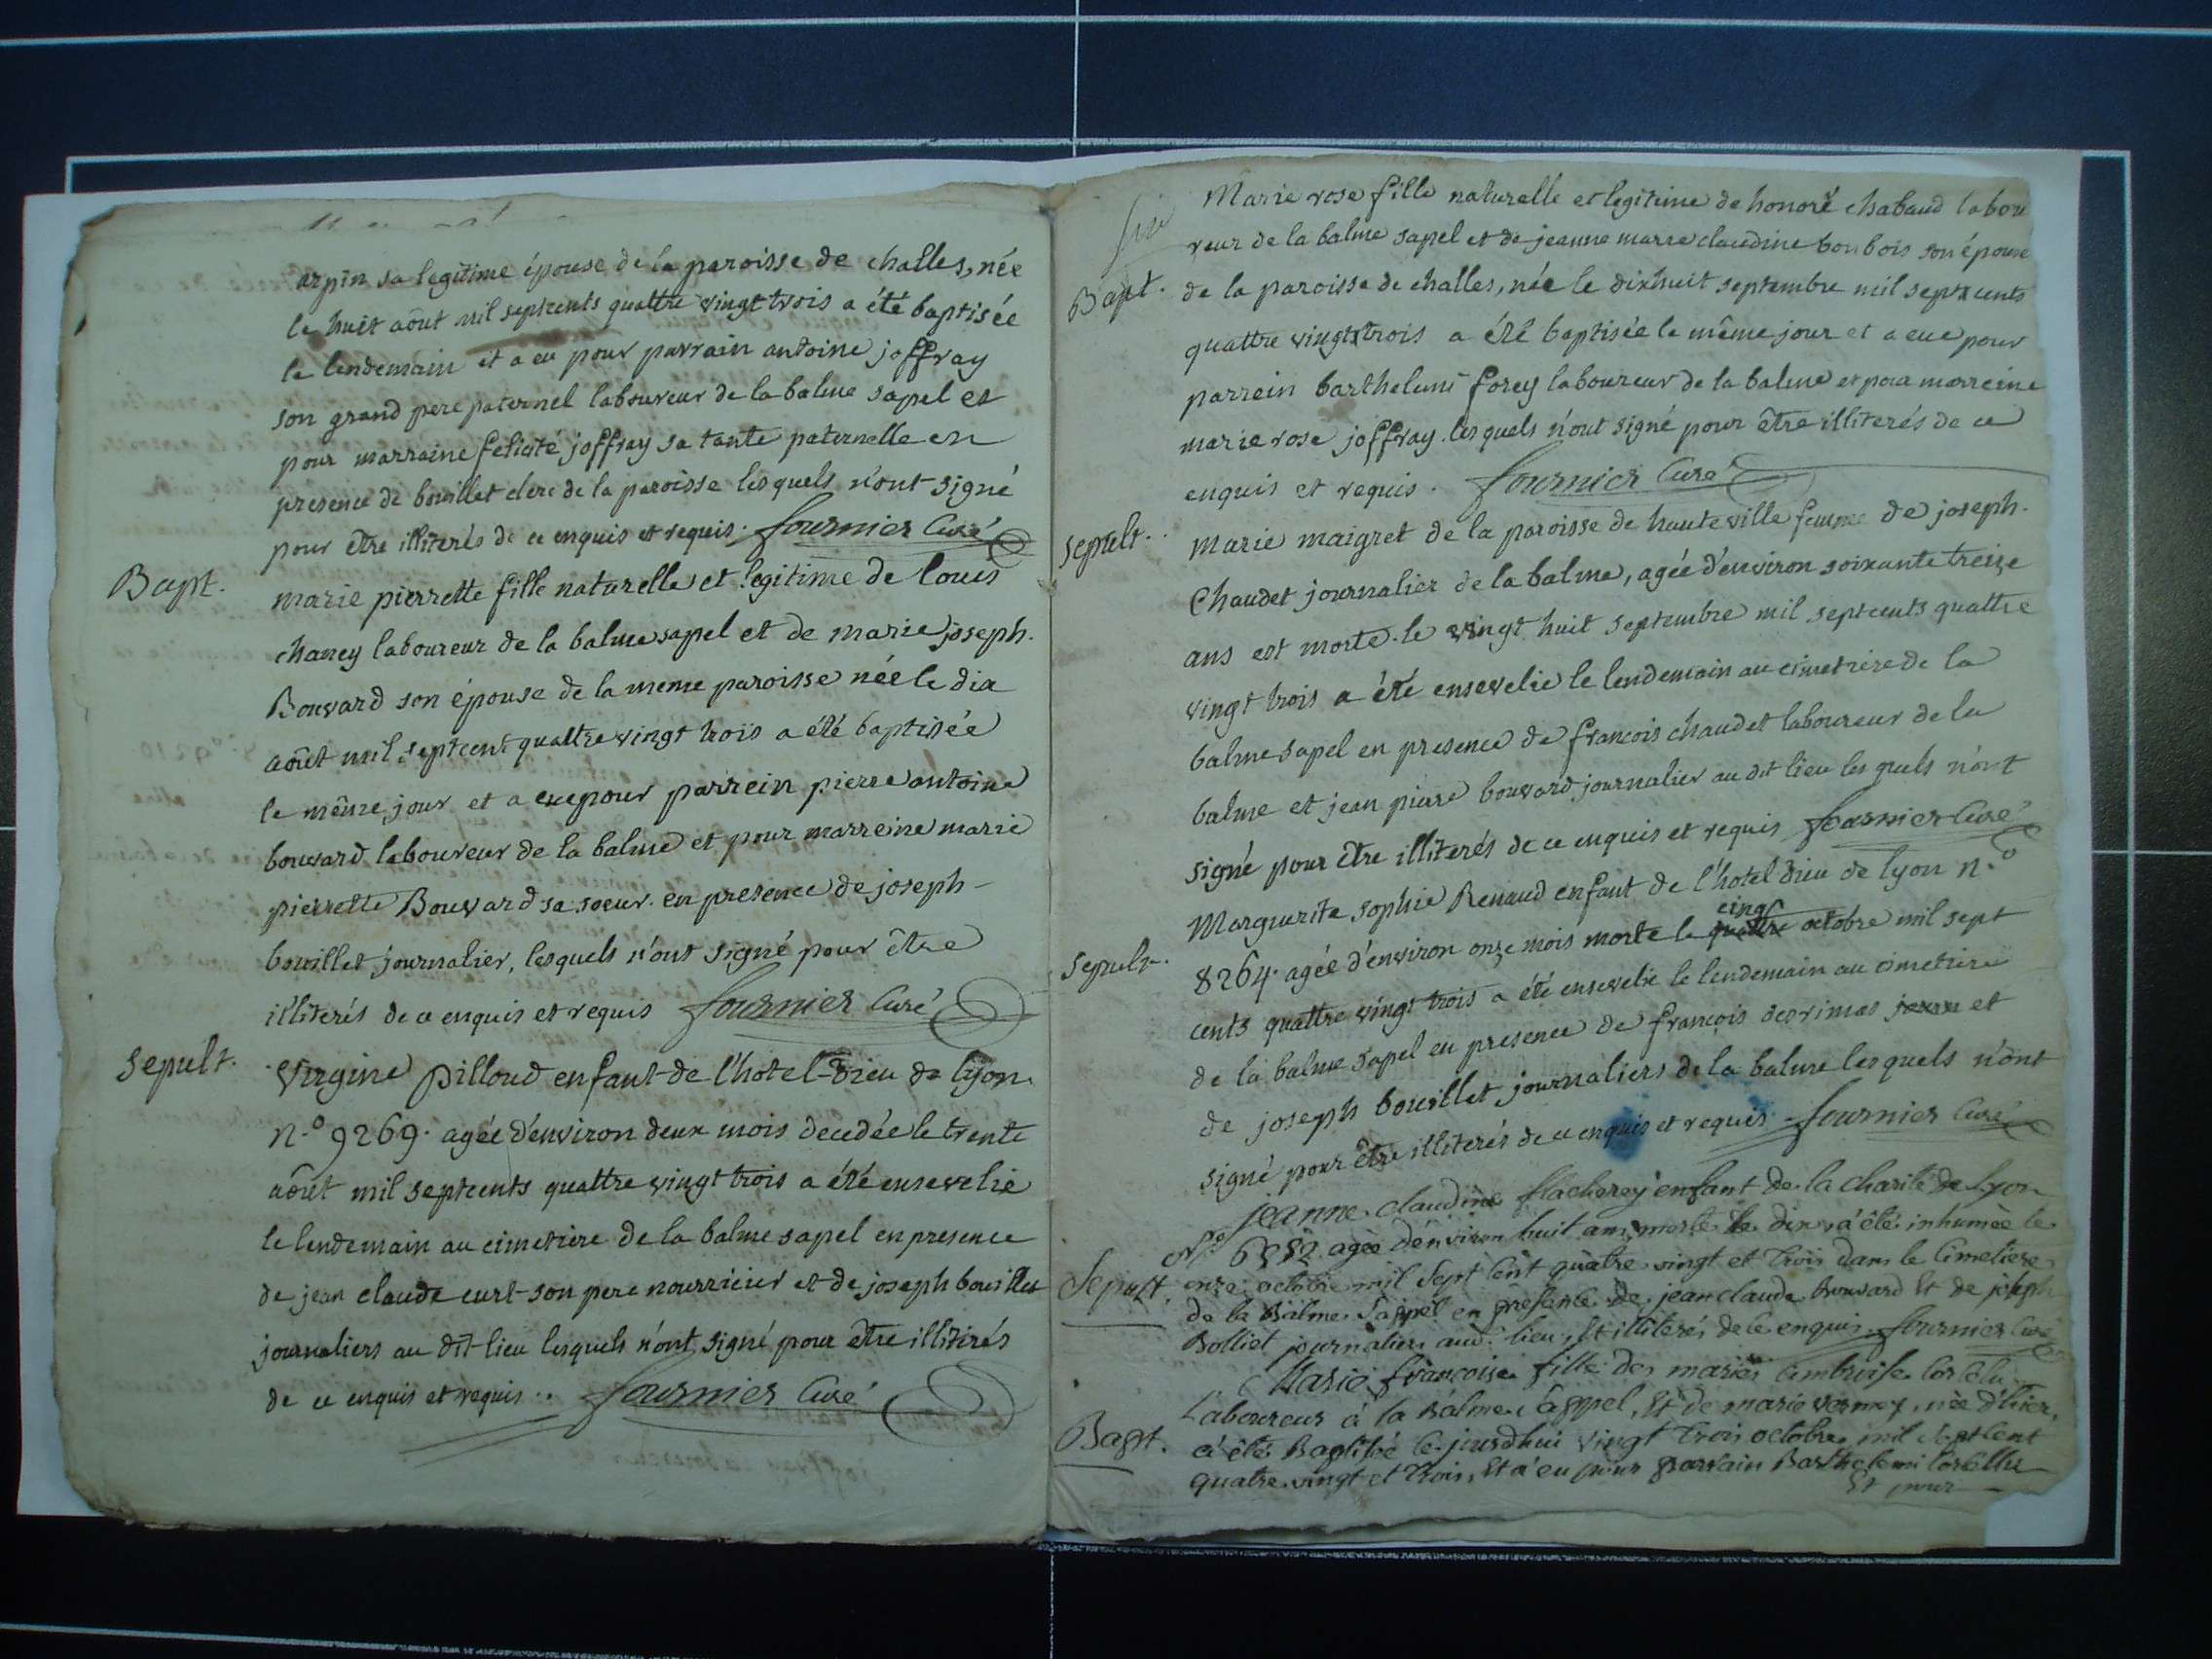 arpin sa legitime épouse de la paroisse de challes, née
le huit aôut mil septcents quattre vingt trois a été baptisée
le lendemain et a eu pour parrain antoine joffray
son grand pere paternel laboureur de la balme sapel et
pour marraine felicité joffray sa tante paternelle en
presence de bouillet clerc de la paroisse lesquels n'ont signé
pour être illiterés de ce enquis et requis. fournier Curé
Bapt.
marie pierrette fille naturelle et legitime de louis
chaney laboureur de la balme sapel et de marie joseph.
Bouvard son épouse de la meme paroisse née le dix
aôut mil septcent quattre vingt trois a été baptisée
le même jour et a eue pour parrein pierre antoine
bouvard laboureur de la balme et pour marreine marie
pierrette Bouvard sa soeur. en presence de joseph
bouillet journalier, lesquels n'ont signé pour être
illiterés de ce enquis et requis fournier Curé
Sepult.
Virgine Pilloud enfant de l'hotel-Dieu de lyon.
n.º 9269. agée d'environ deux mois decedée le trente
aôut mil septcents quattre vingt trois a été ensevelie
le lendemain au cimetiere de la balme sapel en presence
de jean claude curt son pere nourricier et de joseph bouillet
journaliers au dit lieu lesquels n'ont signé pour être illiterés
de ce enquis et requis.. fournier Curé
Marie rose fille naturelle et legitime de honoré chabaud labou
reur de la balme sapel et de jeanne marie claudine bonbois son épouse
Bapt.
de la paroisse de challes, née le dixhuit septembre mil septcents
quattre vingt trois a été baptisée le même jour et a eue pour
parrein barthelemi forey laboureur de la balme et pour marreine
marie rose joffray. lesquels n'ont signé pour être illiterés de ce
enquis et requis. fournier Curé
sepult.
Marie maigret de la paroisse de hauteville femme de joseph.
Chaudet journalier de la balme, agée d'environ soixante treize
ans est morte le vingt huit septembre mil septcents quattre
vingt trois a été ensevelie le lendemain au cimetiere de la
balme sapel en presence de francois chaudet laboureur de la
balme et jean pierre bouvard journalier au dit lieu lesquels n'ont
signé pour être illiterés de ce enquis et requis fournier Curé
Marguerite sophie Renaud enfant de l'hotel dieu de lyon n.º
cinq
sepult.
8264. agée d'environ onze mois morte le quattre octobre mil sept
cents quattre vingt trois a été ensevelie le lendemain au cimetiere
de la balme sapel en presence de françois desrimas et
de joseph bouillet journaliers de la balme lesquels n'ont
signé pour être illiterés de ce enquis et requis fournier Curé
jeanne claudine flacherey enfant de la charité de Lyon
Nº agée d'environ huit ans, morte le dix, a été inhumée le
Sepult.
onze octobre mil Sept Cent quatre vingt et trois dans le Cimetiere
de la Balme Sappel en presence de jean claude Bouvard Et de joseph
Bolliet journaliers aud. lieu, Et illiterés de ce enquis. fournier Curé
Marie françoise fille des mariés
Laboureur à la Balme Sappel, Et de marie vernay, née d'hier,
Bapt.
a été Baptisée ce jourdhui vingt trois octobre mil Sept Cent
quatre vingt et trois, Et a eu pour parrain Barthelemi
Et pour